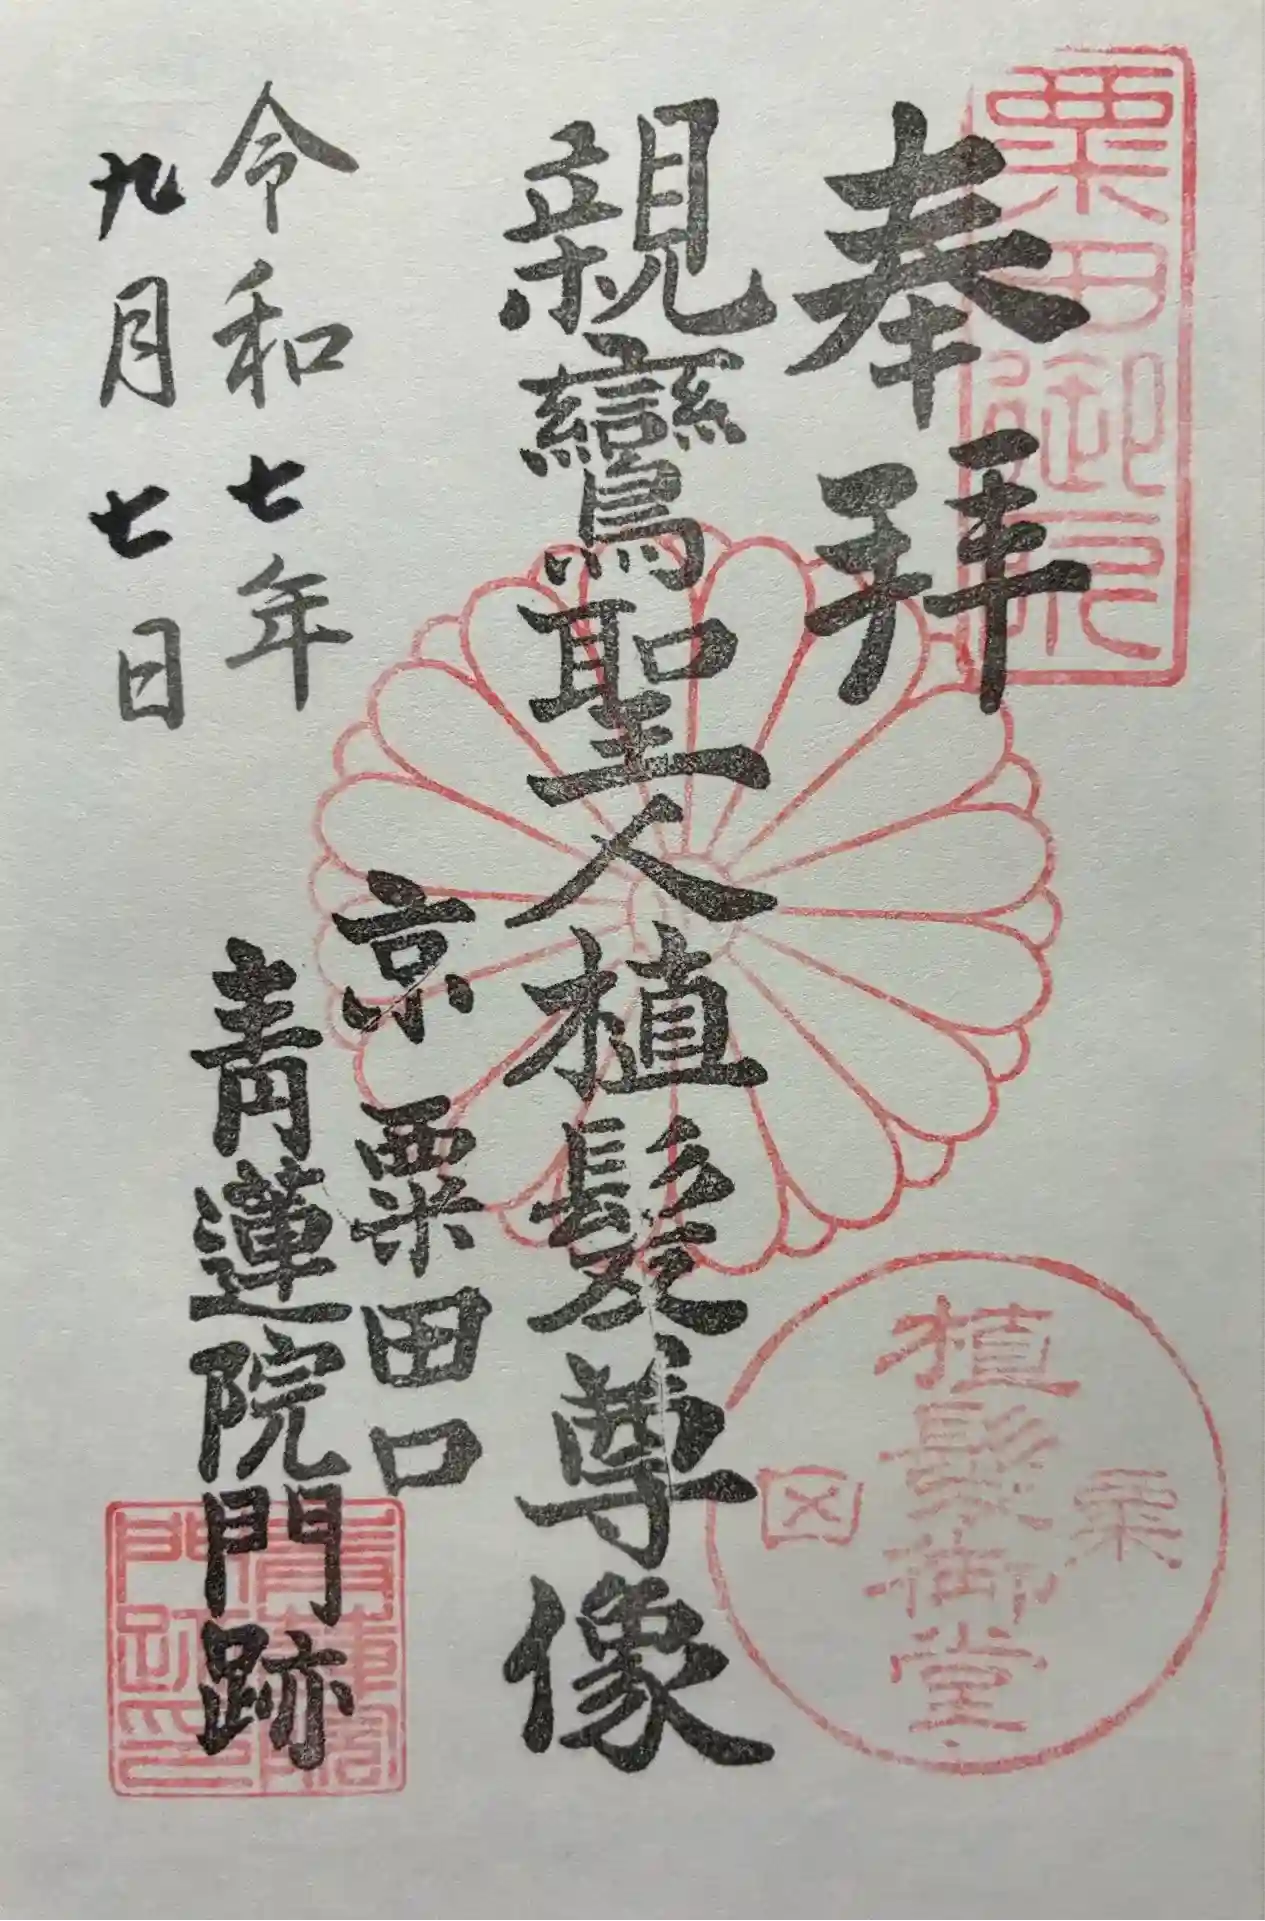 奉拝
粟田御所
親鸞聖人植髪尊像
京 粟田口
青蓮院門跡
令和七年
九月七日
植髪御堂
粟
青蓮院
門跡印